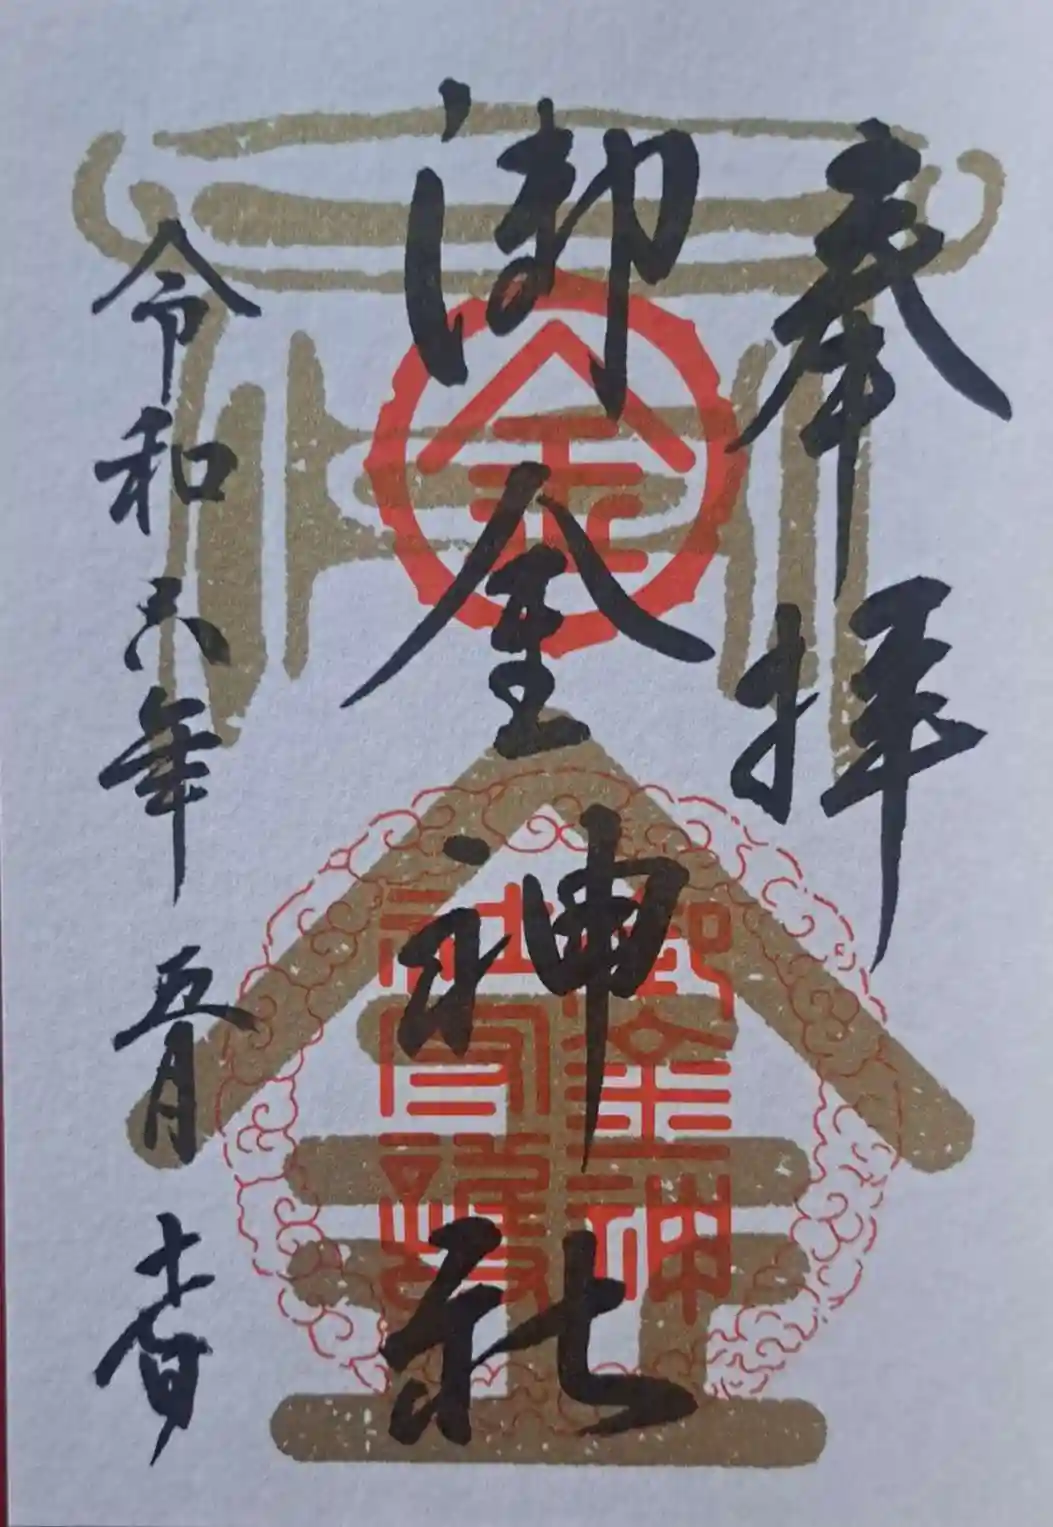 奉拝
御金神社
令和六年五月
金
御金神
社